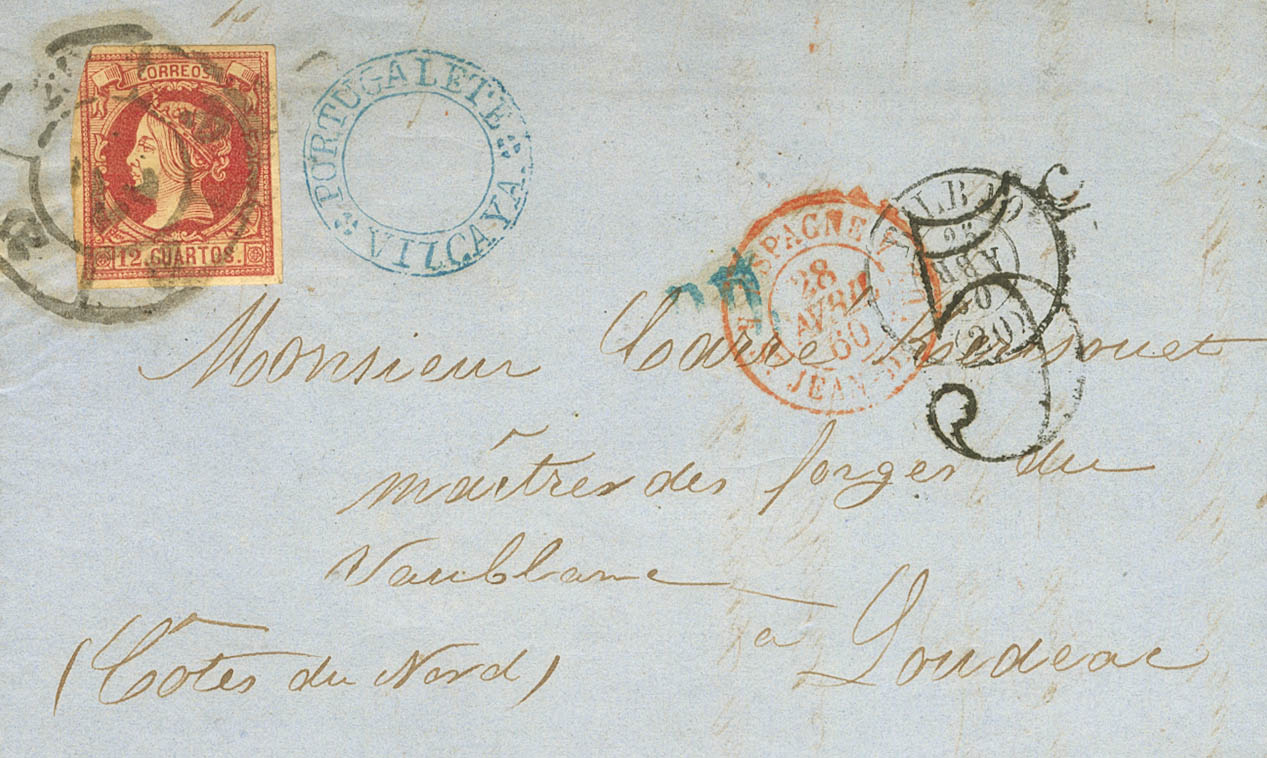 CORREOS
12 CUARTOS.
PORTUGALETE
VIZCAYA
ESPAGNE
28
AVRIL
60
ST JEAN-DE
BILBAO
26
ABR
60
(20)
Monsieur Carré
maîtres des forges du
Vaublanc
à Loudeac
(Côtes du Nord)